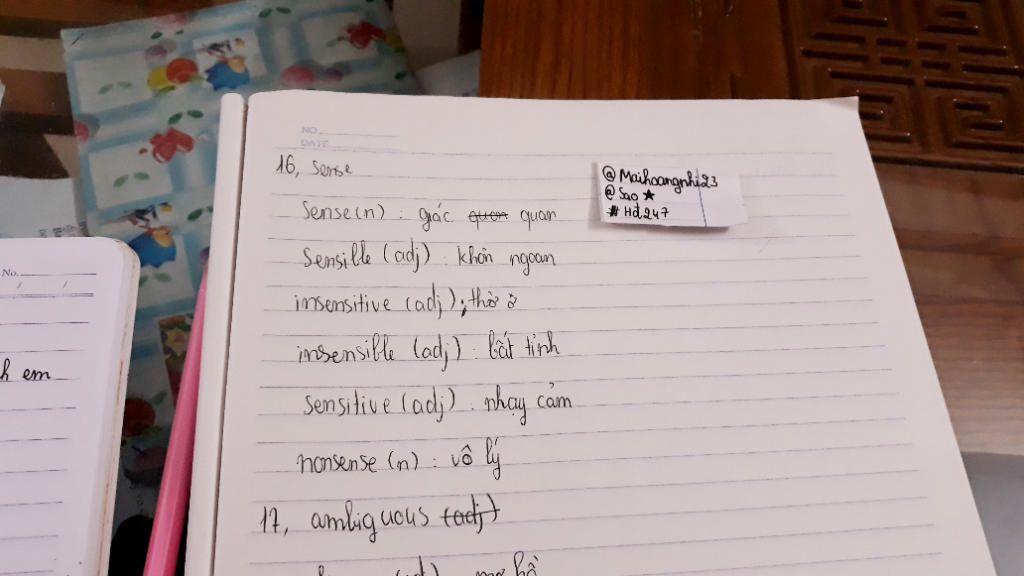 NO.
DATE
16, sense
@Maihoangnhi23
@Sao ★
#Hđ247
Sense(n) : giác quan quan
Sensible (adj) : khôn ngoan
insensitive (adj) : thờ ơ
insensible (adj) : bất tỉnh
sensitive (adj) : nhạy cảm
nonsense (n) : vô lý
17, ambiguous (adj)
mơ hồ
No.
/ /
h em